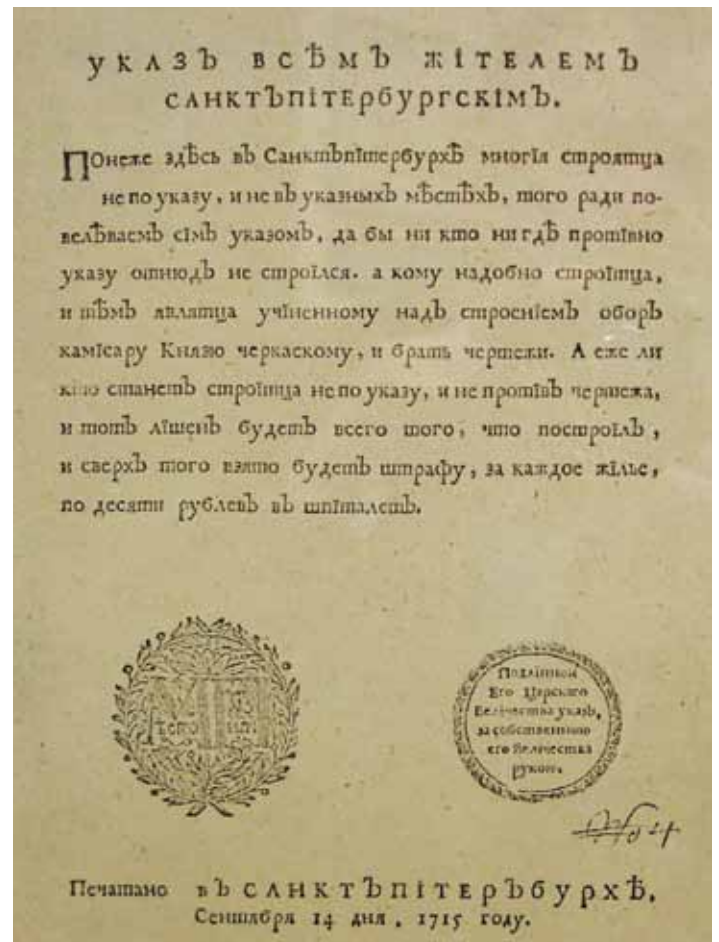 УКАЗЪ ВСѢМЪ ЖІТЕЛЕМЪ
САНКТЪПІТЕРбУРГСКІМЪ.
ПОнеже здѣсь въ Санктъпїтербурхѣ многїя строятца
не по указу, и не въ указныхъ мѣстѣхъ, того ради по-
велѣваемъ сїмъ указомъ, да бы ни кто ни гдѣ протївно
указу отнюдь не строїлся. а кому надобно строїтца,
и тѣмъ являтца учїненному надъ строенїемъ оборъ
камїсару Князю черкаскому, и брать чертежи. А еже ли
кто станетъ строїтца не по указу, и не протївъ чертежа,
и тотъ лїшенъ будетъ всего того, что построїлъ,
и сверхъ того взято будетъ штрафу, за каждое жїлье,
по десяти рублевъ въ шпїталетъ.
Подлїнной
Его Царскаго
Велїчества указъ,
за собственною
его Велїчества
рукою.
Печатано въ САНКТЪПІТЕРЪбУРХѢ,
Сентября 14 дня, 1715 году.